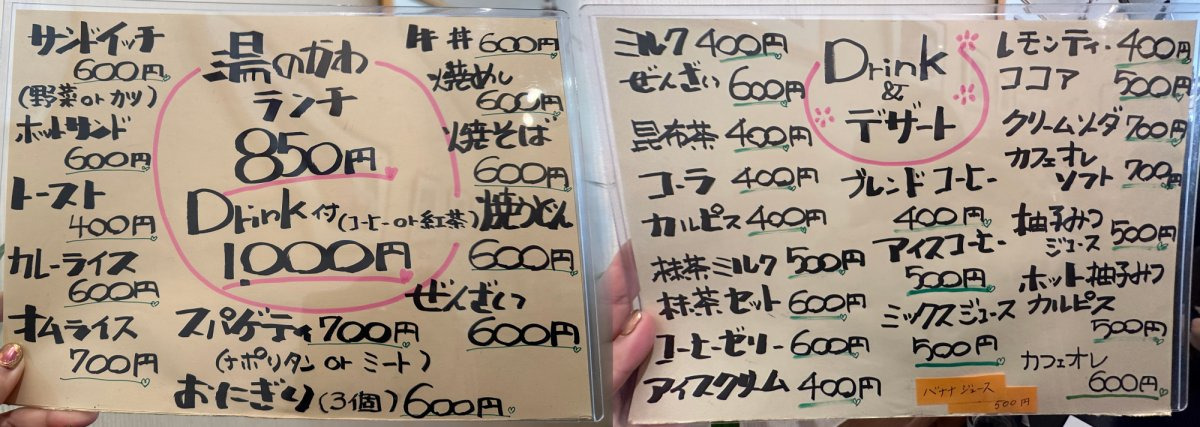 サンドイッチ
600円
(野菜orカツ)
ホットサンド
600円
トースト
400円
カレーライス
600円
オムライス
700円
湯のかわ
ランチ
850円
Drink付(コーヒーor紅茶)
1000円
スパゲティ 700円
(ナポリタン or ミート)
おにぎり(3個) 600円
牛丼 600円
焼めし
600円
焼そば
600円
焼うどん
600円
ぜんざい
600円
ミルク 400円
ぜんざい 600円
昆布茶 400円
コーラ 400円
カルピス 400円
抹茶ミルク 500円
抹茶セット 600円
コーヒーゼリー 600円
アイスクリーム 400円
Drink
&
デザート
ブレンドコーヒー
400円
アイスコーヒー
500円
ミックスジュース
500円
バナナジュース
500円
レモンティー 400円
ココア 500円
クリームソーダ 700円
カフェオレ
ソフト 700円
柚子みつ
ジュース 500円
ホット柚子みつ
カルピス
500円
カフェオレ
600円